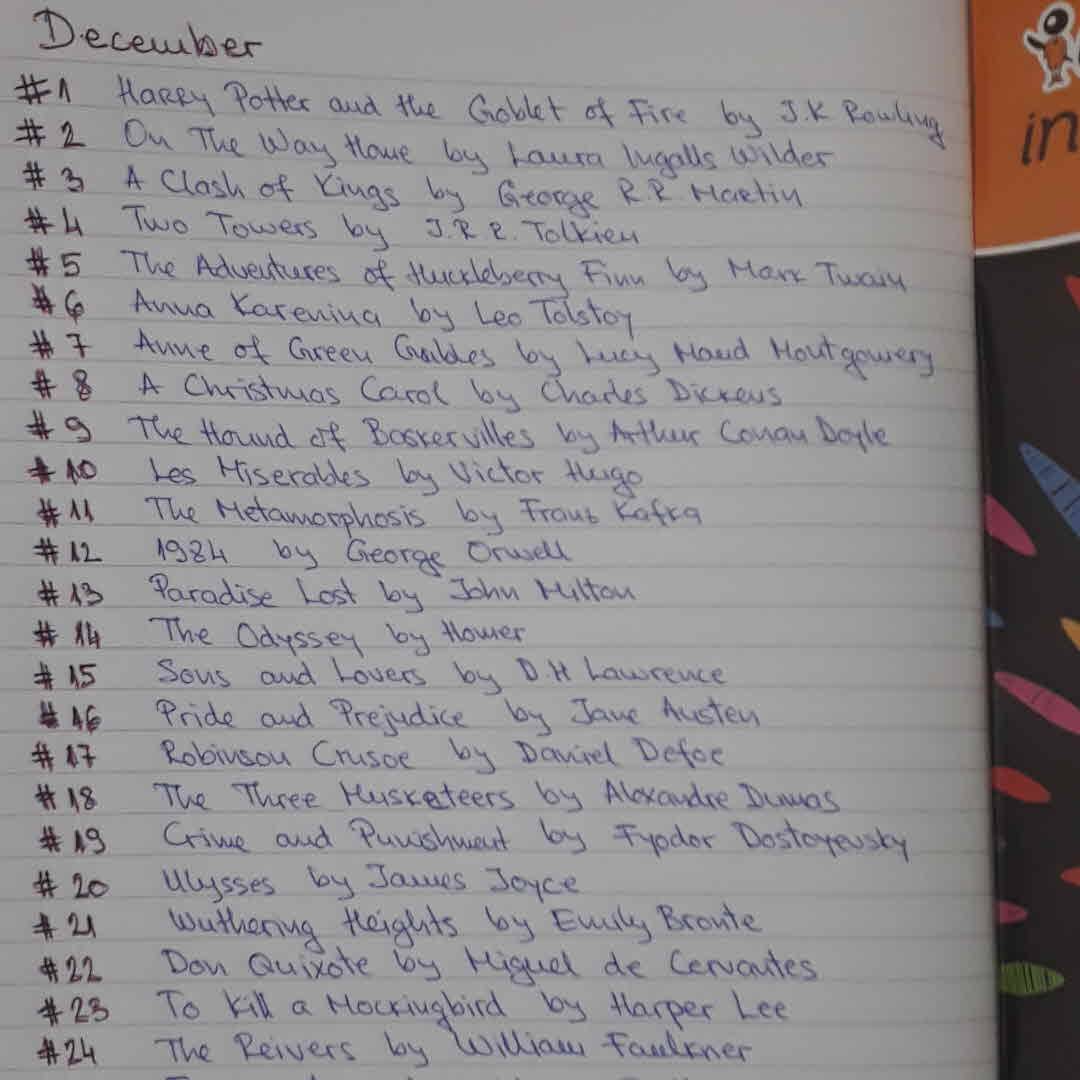 December
#1 Harry Potter and the Goblet of Fire by J.K Rowling
#2 On The Way Home by Laura Ingalls Wilder
#3 A Clash of Kings by George R.R. Martin
#4 Two Towers by J.R.R. Tolkien
#5 The Adventures of Huckleberry Finn by Mark Twain
#6 Anna Karenina by Leo Tolstoy
#7 Anne of Green Gables by Lucy Maud Montgomery
#8 A Christmas Carol by Charles Dickens
#9 The Hound of Baskervilles by Arthur Conan Doyle
#10 Les Miserables by Victor Hugo
#11 The Metamorphosis by Franz Kafka
#12 1984 by George Orwell
#13 Paradise Lost by John Milton
#14 The Odyssey by Homer
#15 Sons and Lovers by D.H Lawrence
#16 Pride and Prejudice by Jane Austen
#17 Robinson Crusoe by Daniel Defoe
#18 The Three Musketeers by Alexandre Dumas
#19 Crime and Punishment by Fyodor Dostoyevsky
#20 Ulysses by James Joyce
#21 Wuthering Heights by Emily Bronte
#22 Don Quixote by Miguel de Cervantes
#23 To Kill a Mockingbird by Harper Lee
#24 The Reivers by William Faulkner
in